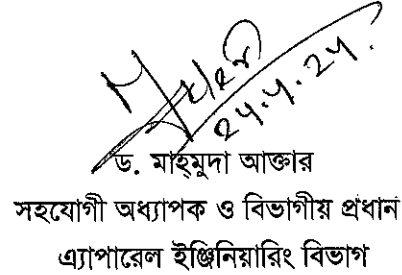 ড. মাহ্‌মুদা আক্তার
সহযোগী অধ্যাপক ও বিভাগীয় প্রধান
এ্যাপারেল ইঞ্জিনিয়ারিং বিভাগ